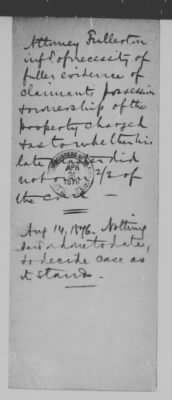 Attorney Fullerton
inf'd of necessity of
fuller evidence of
claimants possession
& ownership of the
property charged
& as to whether his
late did
not own 1/2 of
the
APR
Aug 14, 1876. Nothing
said or done to date,
so decide case as
it stands.